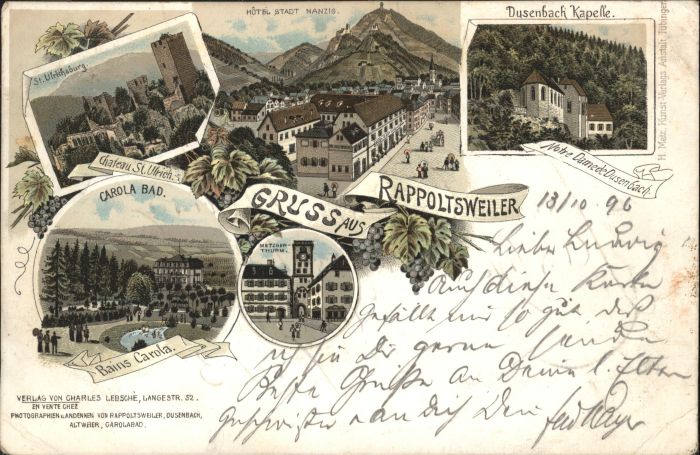 HÔTEL STADT NANZIG.
Dusenbach Kapelle.
St. Ulrichsburg.
Château St. Ulrich.
Notre Dame de Dusenbach.
H. Metz, Kunst-Verlags-Anstalt, Tübingen
CAROLA BAD.
GRUSS AUS RAPPOLTSWEILER
METZGER-
THURM.
Bains Carola.
13/10 96
Lieber Ludwig
Auf diese Karte
Gefällt mir so gut daß
ich sie Dir gerne senden
Beste Grüße an Deine l. Eltern
Geschwister an dich Dein
VERLAG VON CHARLES LEBSCHE, LANGESTR. 52.
EN VENTE CHEZ
PHOTOGRAPHIEN & ANDENKEN VON RAPPOLTSWEILER, DUSENBACH,
ALTWEIER, CAROLABAD.